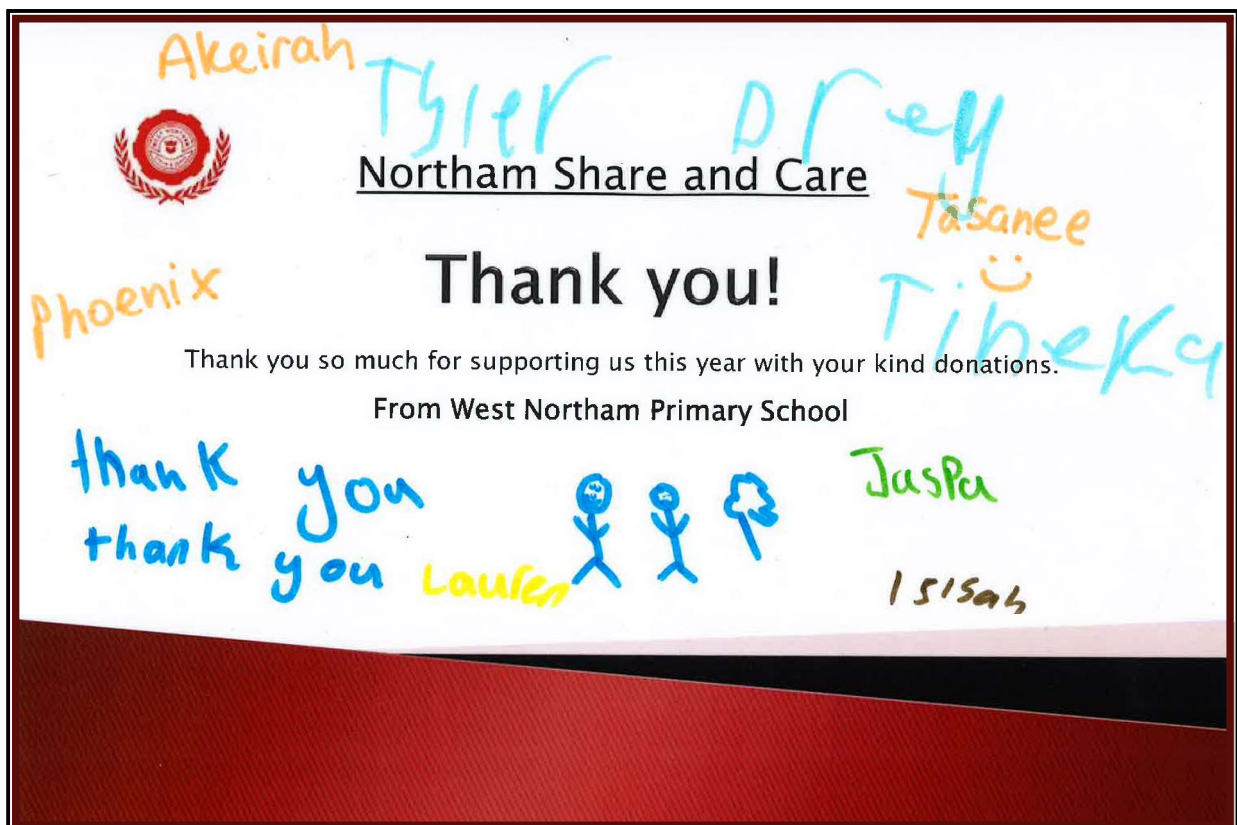 Akeirah
Tyler Drey
Northam Share and Care
Tasanee
Thank you!
Phoenix
Tineka
Thank you so much for supporting us this year with your kind donations.
From West Northam Primary School
thank you
JasPa
thank you Lauren